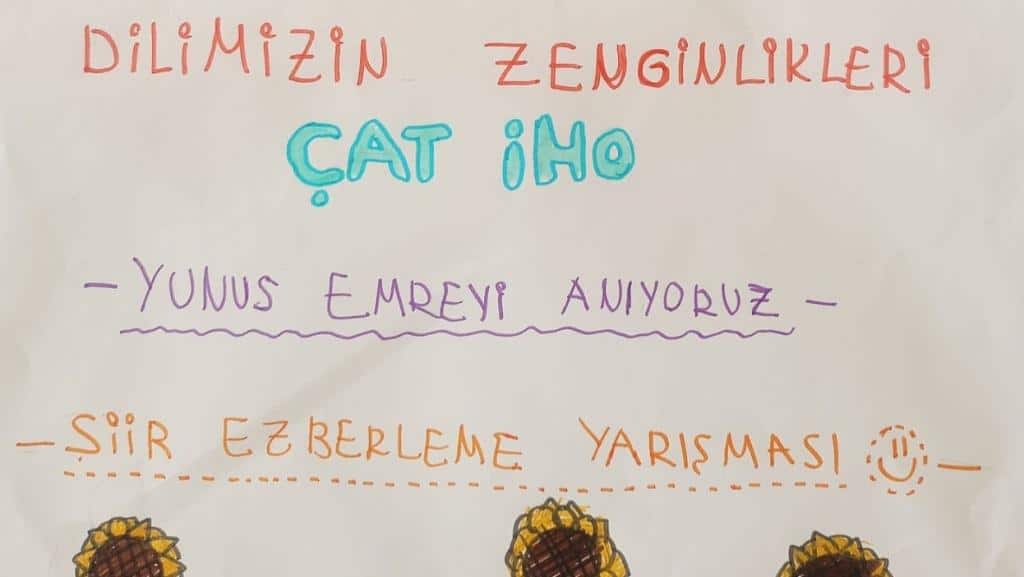 DİLİMİZİN ZENGİNLİKLERİ
ÇAT İHO
- YUNUS EMREYİ ANIYORUZ -
- ŞİİR EZBERLEME YARIŞMASI -